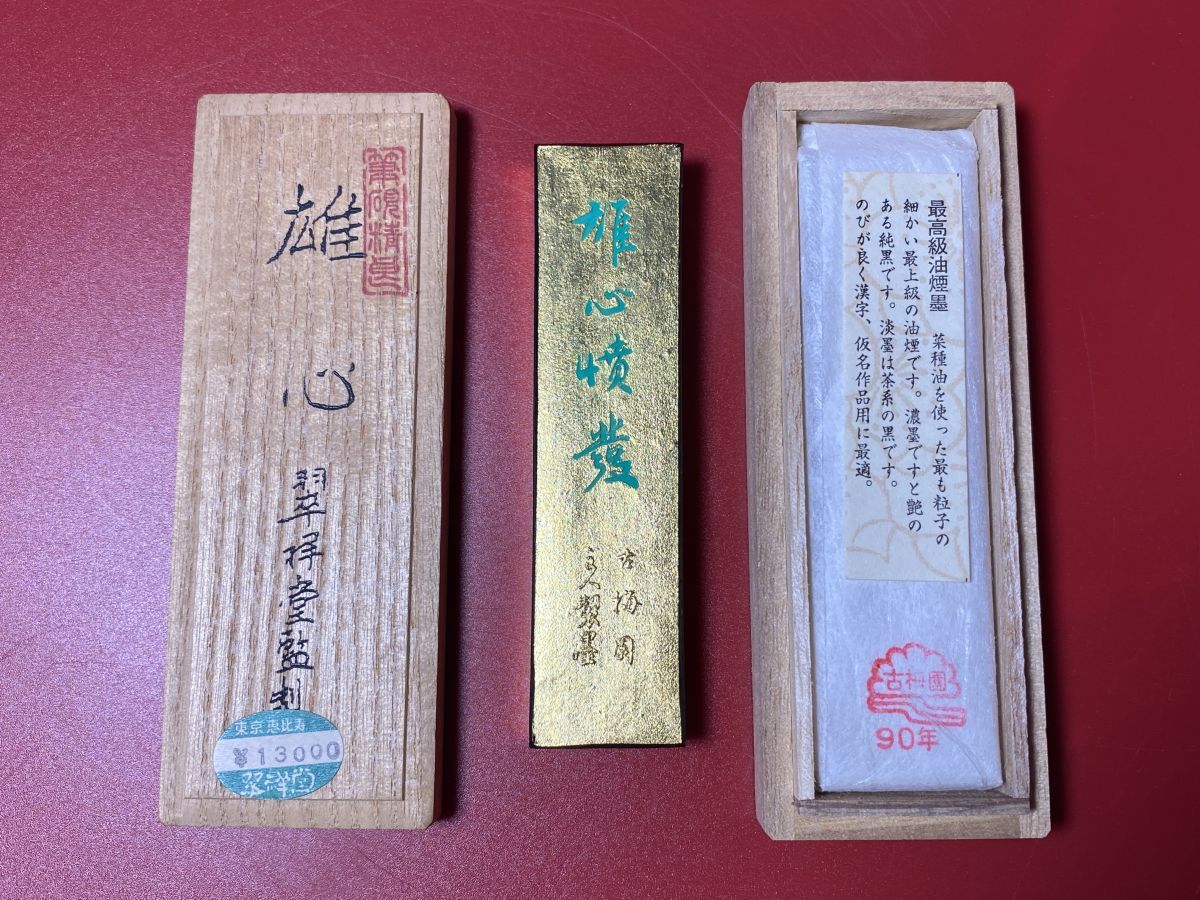 雄心
翠祥堂監製
筆硯精良
東京恵比寿
¥13000
翠祥堂
雄心憤發
古梅園
主人製墨
最高級油煙墨　菜種油を使った最も粒子の
細かい最上級の油煙です。濃墨ですと艶の
ある純黒です。淡墨は茶系の黒です。
のびが良く漢字、仮名作品用に最適。
古梅園
90年